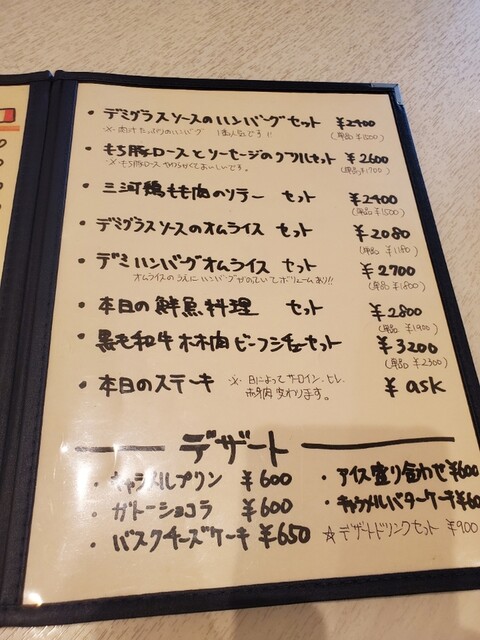 ・デミグラスソースのハンバーグセット ¥2400
(単品 ¥1500)
・もち豚ロースとソーセージのグリルセット ¥2600
※もち豚ロース やわらかくておいしいです。 (単品 ¥1700)
・三河鶏もも肉のソテー セット ¥2400
(単品 ¥1500)
・デミグラスソースのオムライス セット ¥2080
(単品 ¥1180)
・デミハンバーグオムライス セット ¥2700
オムライスのうえにハンバーグがのっていてボリュームあり!! (単品 ¥1800)
・本日の鮮魚料理 セット ¥2800
(単品 ¥1900)
・黒毛和牛ホホ肉ビーフシチューセット ¥3200
(単品 ¥2300)
・本日のステーキ ※日によってサーロイン、ヒレ、 ¥ ask
変わります。
デザート
・キャラメルプリン ¥600
・ガトーショコラ ¥600
・バスクチーズケーキ ¥650
・アイス盛り合わせ ¥600
・キャラメルバターケーキ ¥60
☆デザートドリンクセット ¥900